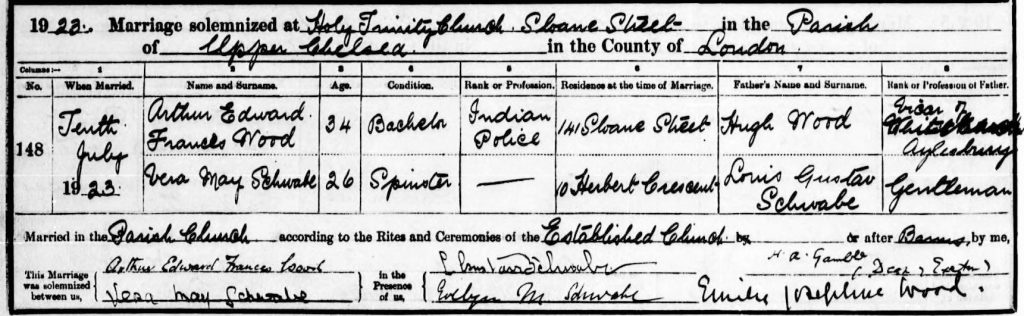 1923. Marriage solemnized at Holy Trinity Church Sloane Street in the Parish
of Upper Chelsea in the County of London.
Columns:— 1 2 3 4 5 6 7 8
No. When Married. Name and Surname. Age. Condition. Rank or Profession. Residence at the time of Marriage. Father's Name and Surname. Rank or Profession of Father.
148 Tenth July 1923 Arthur Edward Frances Wood 34 Bachelor Indian Police 141 Sloane Street Hugh Wood Vicar of Whitchurch Aylesbury
Vera May Schwabe 26 Spinster — 10 Herbert Crescent Louis Gustav Schwabe Gentleman
Married in the Parish Church according to the Rites and Ceremonies of the Established Church by or after Banns, by me,
H. A. Gamble (Dean, Exeter)
This Marriage was solemnized between us, Arthur Edward Frances Wood in the Presence of us, Schwabe
Vera May Schwabe Evelyn M Schwabe Emilie Josephine Wood.